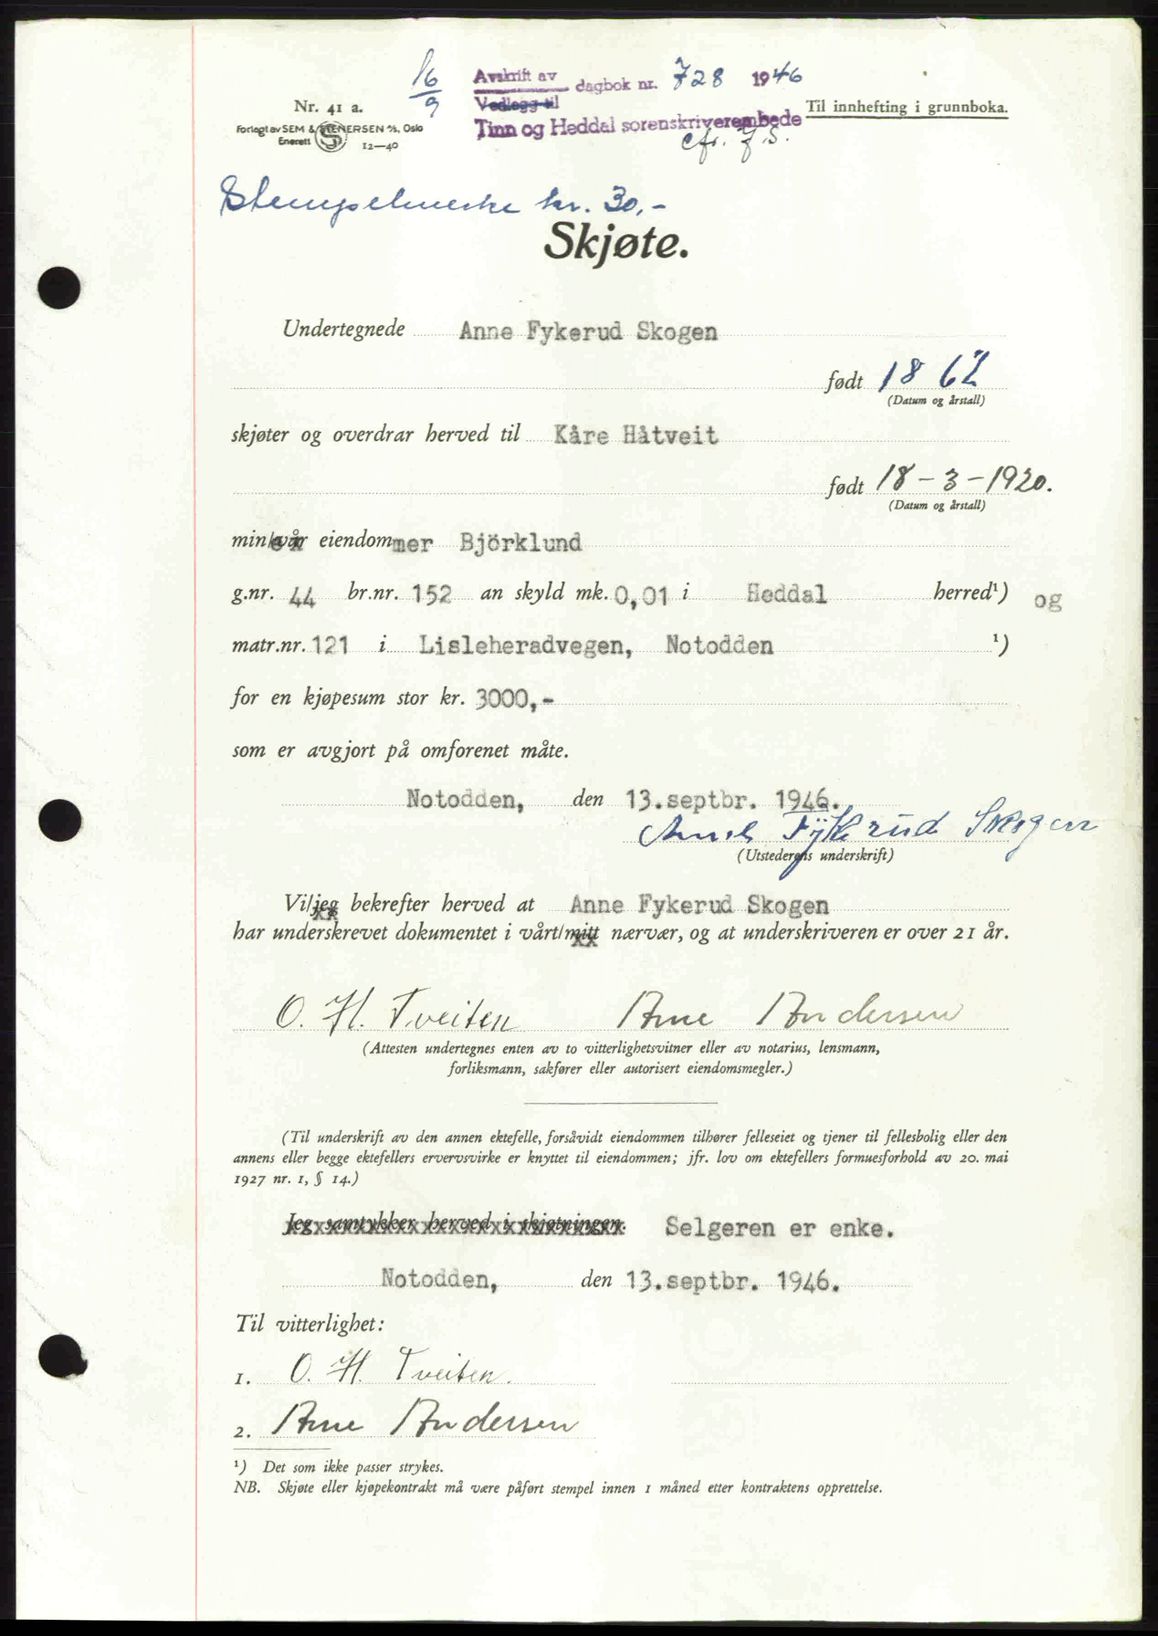 16/9
Avskrift av dagbok nr. 728 1946
Vedlegg til
Tinn og Heddal sorenskriverembede
Nr. 41 a.
Til innhefting i grunnboka.
Forlagt av SEM & STENERSEN A/S, Oslo
Enerett S 12—40
Stempelmerke kr. 30,-
Skjøte.
Undertegnede Anne Fykerud Skogen
født 1862
(Datum og årstall)
skjøter og overdrar herved til Kåre Håtveit
født 18-3-1920.
(Datum og årstall)
mine/vår eiendommer Björklund
g.nr. 44 br.nr. 152 an skyld mk. 0,01 i Heddal herred¹) og
matr.nr. 121 i Lisleheradvegen, Notodden ¹)
for en kjøpesum stor kr. 3000,-
som er avgjort på omforenet måte.
Notodden, den 13.septbr. 1946.
Anne Fykerud Skogen
(Utstederens underskrift)
Vi/jeg bekrefter herved at Anne Fykerud Skogen
har underskrevet dokumentet i vårt/mitt nærvær, og at underskriveren er over 21 år.
O. H. Tveiten Arne Andersen
(Attesten undertegnes enten av to vitterlighetsvitner eller av notarius, lensmann,
forliksmann, sakfører eller autorisert eiendomsmegler.)
(Til underskrift av den annen ektefelle, forsåvidt eiendommen tilhører felleseiet og tjener til fellesbolig eller den
annens eller begge ektefellers ervervsvirke er knyttet til eiendommen; jfr. lov om ektefellers formuesforhold av 20. mai
1927 nr. 1, § 14.)
Jeg samtykker herved i skjøtningen. Selgeren er enke.
Notodden, den 13.septbr. 1946.
Til vitterlighet:
1. O. H. Tveiten.
2. Arne Andersen
¹) Det som ikke passer strykes.
NB. Skjøte eller kjøpekontrakt må være påført stempel innen 1 måned etter kontraktens opprettelse.